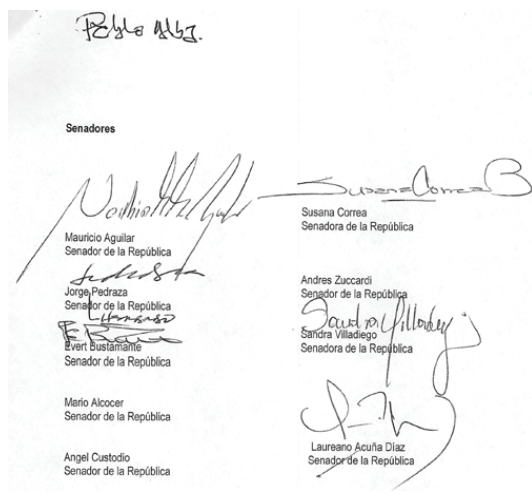 Pablo
Senadores
Mauricio Aguilar
Senador de la República
Jorge Pedraza
Senador de la República
Evert Bustamante
Senador de la República
Mario Alcocer
Senador de la República
Angel Custodio
Senador de la República
Susana Correa B
Susana Correa
Senadora de la República
Andres Zuccardi
Senador de la República
Sandra Villadiego
Sandra Villadiego
Senadora de la República
Laureano Acuña Díaz
Senador de la República